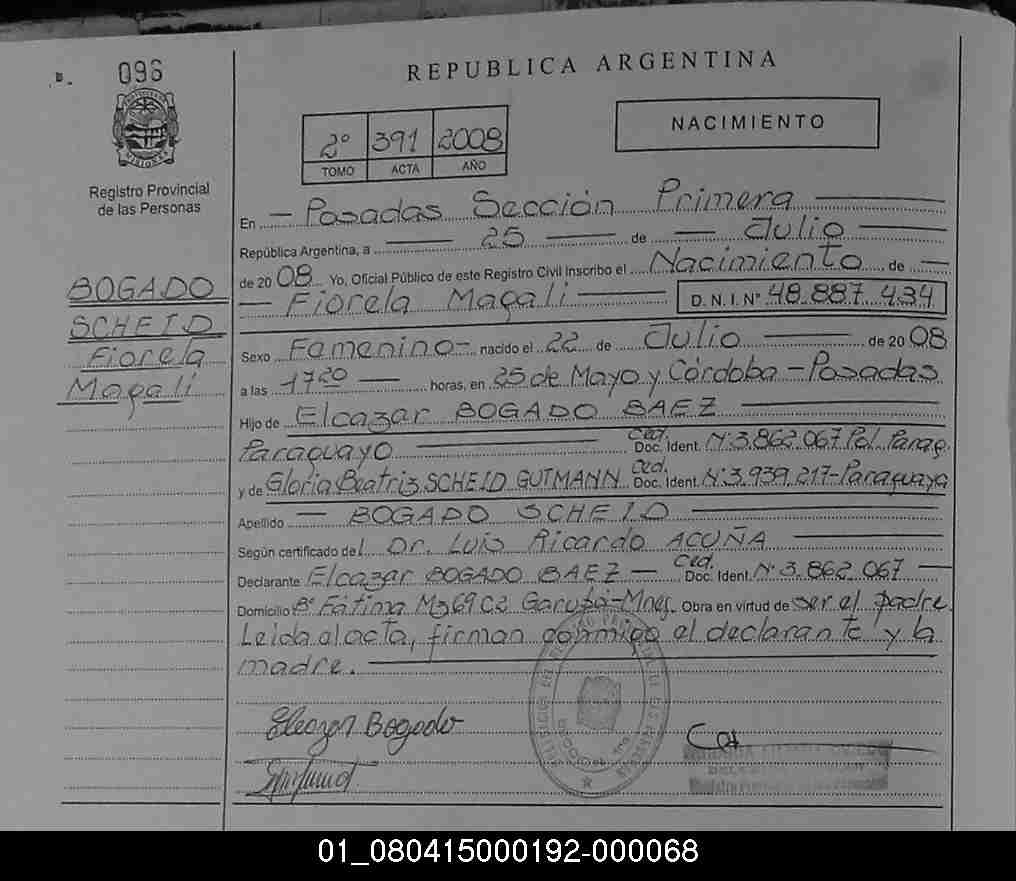 096
REPUBLICA ARGENTINA
2° 391 2008
TOMO ACTA AÑO
NACIMIENTO
Registro Provincial
de las Personas
BOGADO
SCHEID
Fiorela
Magali
En Posadas Sección Primera
República Argentina, a 25 de Julio
de 2008 Yo, Oficial Público de este Registro Civil Inscribo el Nacimiento de
Fiorela Magali D.N.I.N° 48.887.434
Sexo Femenino nacido el 22 de Julio de 2008
a las 17 20 horas, en 25 de Mayo y Córdoba - Posadas
Hijo de Eleazar BOGADO BAEZ
Paraguayo Ced. Doc. Ident. N° 3.862.067 Pol. Parag.
y de Gloria Beatriz SCHEID GUTMANN Ced. Doc. Ident. N° 3.939.217-Paraguaya
Apellido BOGADO SCHEID
Según certificado del Dr. Luis Ricardo ACUÑA
Declarante Eleazar BOGADO BAEZ Ced. Doc. Ident. N° 3.862.067
Domicilio B° Fátima Mz 69 C2 Garupá-Mnes. Obra en virtud de ser el padre.
Leida el acta, firman conmigo el declarante y la
madre.
Eleazar Bogado
01_080415000192-000068